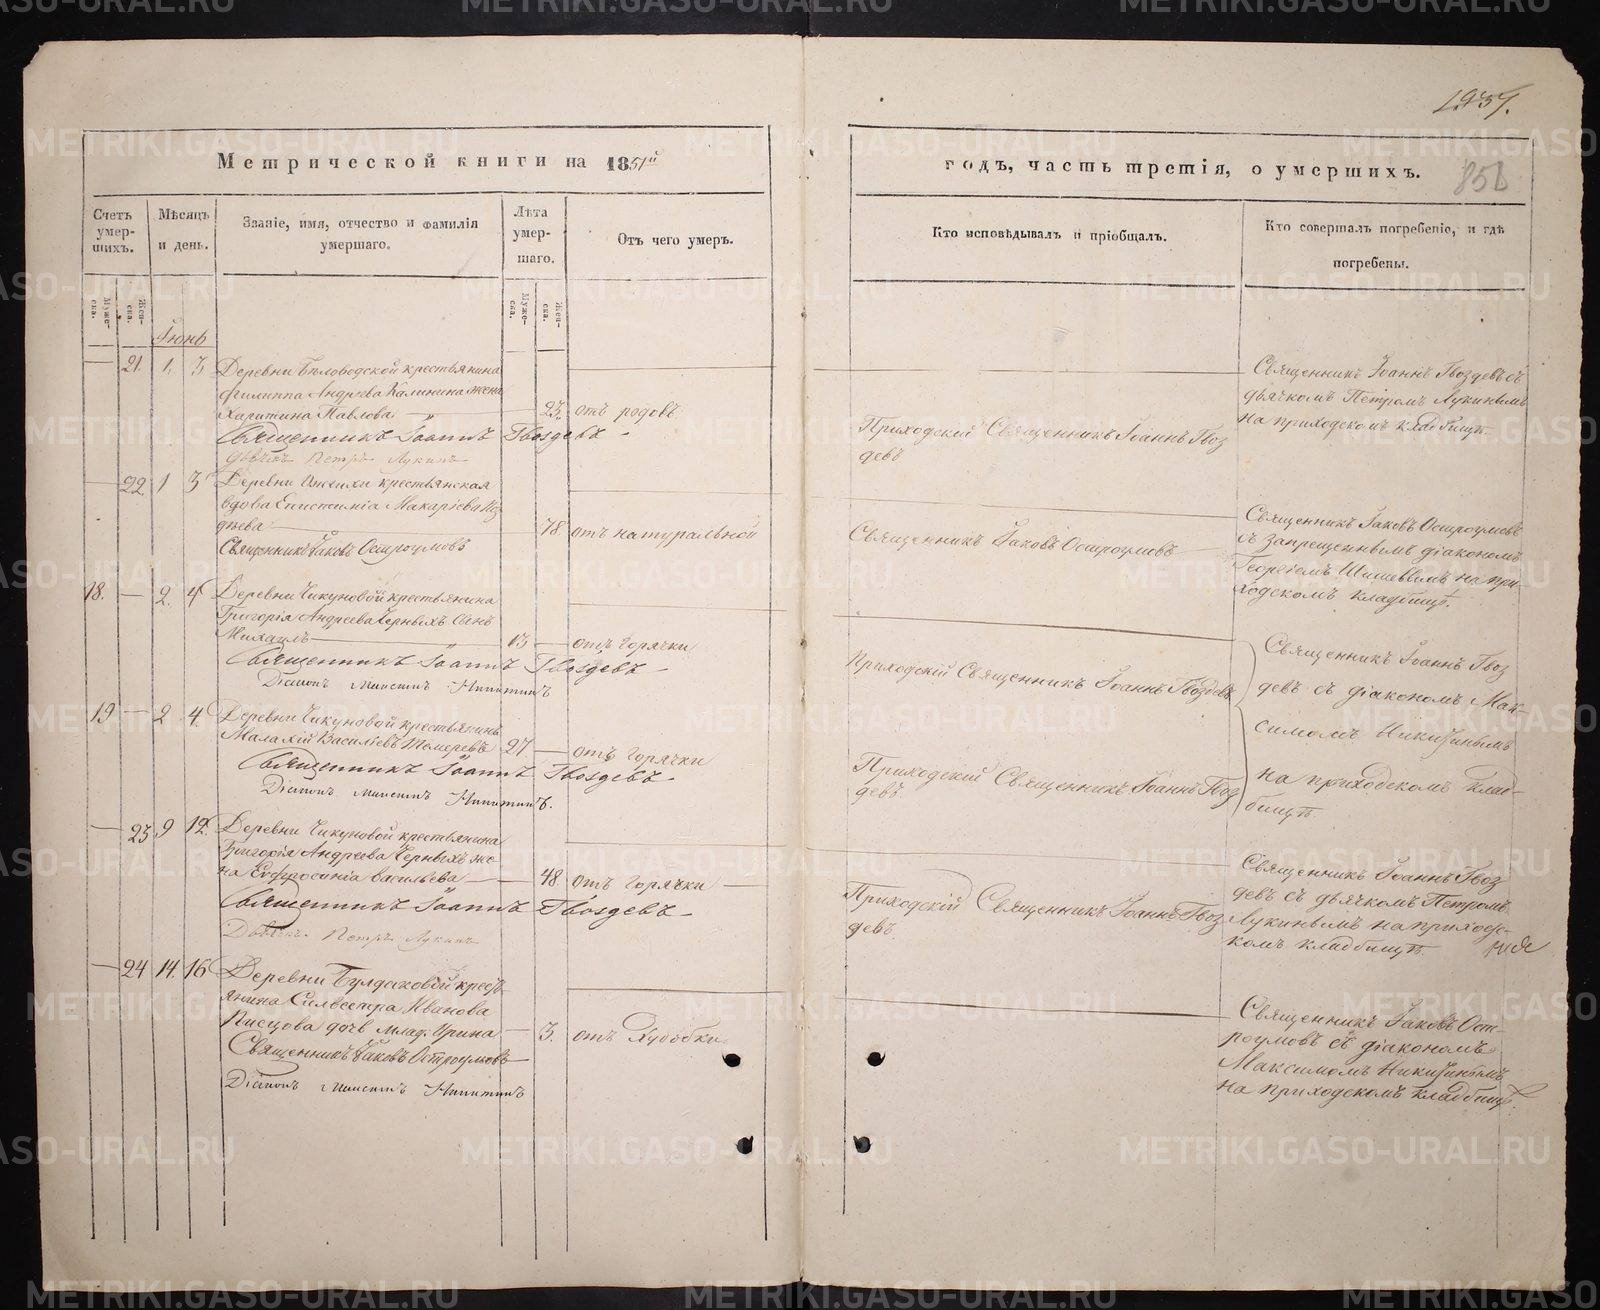 1957.
Метрической книги на 1851й
годъ, часть третія, о умершихъ.
856
Счетъ умер-шихъ.
Мѣсяцъ и день.
Званіе, имя, отчество и фамилія умершаго.
Лѣта умер-шаго.
Отъ чего умеръ.
Кто исповѣдывалъ и пріобщалъ.
Кто совершалъ погребеніе, и гдѣ погребены.
Муже-ска.
Жен-ска.
Муже-ска.
Жен-ска.
Іюнь
21. 1. 3. Деревни Бѣловодской крестьянина
Филиппа Андреева Калинина жена
Харитина Павлова 23. отъ родовъ
Священникъ Іоаннъ Гвоздевъ
Дьячекъ Петръ Лукинъ
Приходскій Священникъ Іоаннъ Гвоз
девъ
Священникъ Іоаннъ Гвоздевъ съ
дьячкомъ Петромъ Лукинымъ
на приходскомъ кладбищѣ.
22. 1 3 Деревни крестьянская
вдова Епистимія Макаріева
78. отъ натуральной
Священникъ Іаковъ Остроумовъ
Священникъ Іаковъ Остроумовъ
Священникъ Іаковъ Остроумовъ
съ запрещеннымъ діакономъ
Георгіемъ на при-
ходскомъ кладбищѣ.
18. 2. 4. Деревни Чикуновой крестьянина
Григорія Андреева Черныхъ сынъ
Михаилъ 13 отъ горячки
Священникъ Іоаннъ Гвоздевъ
Діаконъ Максимъ Никитинъ
Приходскій Священникъ Іоаннъ Гвоздевъ
Священникъ Іоаннъ Гвоз
девъ съ діакономъ Мак-
симомъ Никитинымъ
на приходскомъ клад-
бищѣ.
19 2 4. Деревни Чикуновой крестьянинъ
Малахій Васильевъ 27 отъ горячки
Священникъ Іоаннъ Гвоздевъ
Діаконъ Максимъ Никитинъ.
Приходскій Священникъ Іоаннъ Гвоз
девъ
23 9 12. Деревни Чикуновой крестьянина
Григорія Андреева Черныхъ же-
на Евфросинія Васильева 48. отъ горячки
Священникъ Іоаннъ Гвоздевъ
Дьячекъ Петръ Лукинъ
Приходскій Священникъ Іоаннъ Гвоз
девъ.
Священникъ Іоаннъ Гвоз
девъ съ дьячкомъ Петромъ
Лукинымъ на приходс-
комъ кладбищѣ.
24 14. 16 Деревни Булдаковой крест
янина Силвестра Иванова
Писцова дочь млад. Ирина 3. отъ худобки
Священникъ Іаковъ Остроумовъ
Діаконъ Максимъ Никитинъ
Священникъ Іаковъ Ост-
роумовъ съ діакономъ
Максимомъ Никитинымъ
на приходскомъ кладбищѣ.
METRIKI.GASO-URAL.RU